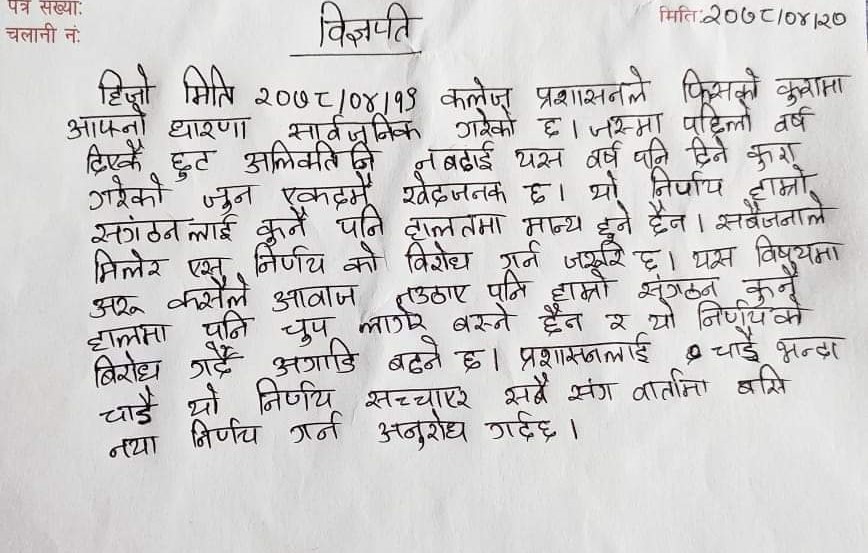 पत्र संख्या:
चलानी नं:
मिति: २०७८/०४/२०
विज्ञपति
हिजो मिति २०७८/०४/१९ कलेज प्रशासनले फिसको कुरामा
आफ्नो धारणा सार्वजनिक गरेको छ । जसमा पहिलो वर्ष
दिएकै छुट अलिकति नि नबढाई यस वर्ष पनि दिने कुरा
गरेको जुन एकदमै खेदजनक छ । यो निर्णय हाम्रो
संगठनलाई कुनै पनि हालतमा मान्य हुने छैन । सबैजनाले
मिलेर एस निर्णय को विरोध गर्न जरुरि छ । यस विषयमा
अरू कसैले आवाज नउठाए पनि हाम्रो संगठन कुनै
हालमा पनि चुप लागेर बस्ने छैन र यो निर्णयको
बिरोध गर्दै अगाडि बढने छ । प्रशासनलाई चाडै भन्दा
चाडै यो निर्णय सच्चाएर सबै संग वार्तामा बसि
नया निर्णय गर्न अनुरोध गर्दछ ।